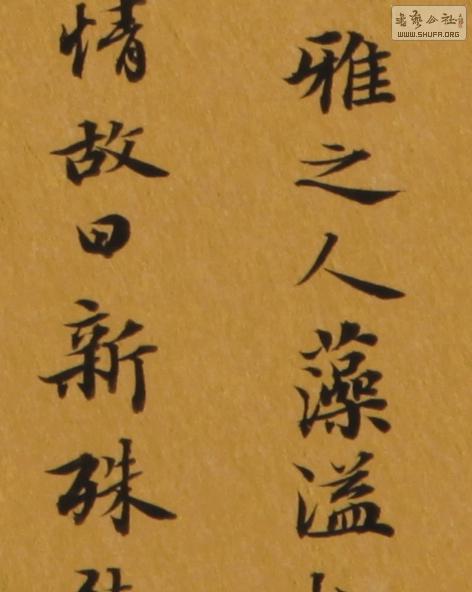 雅之人藻溢
情故日新殊
书艺公社
WWW.SHUFA.ORG